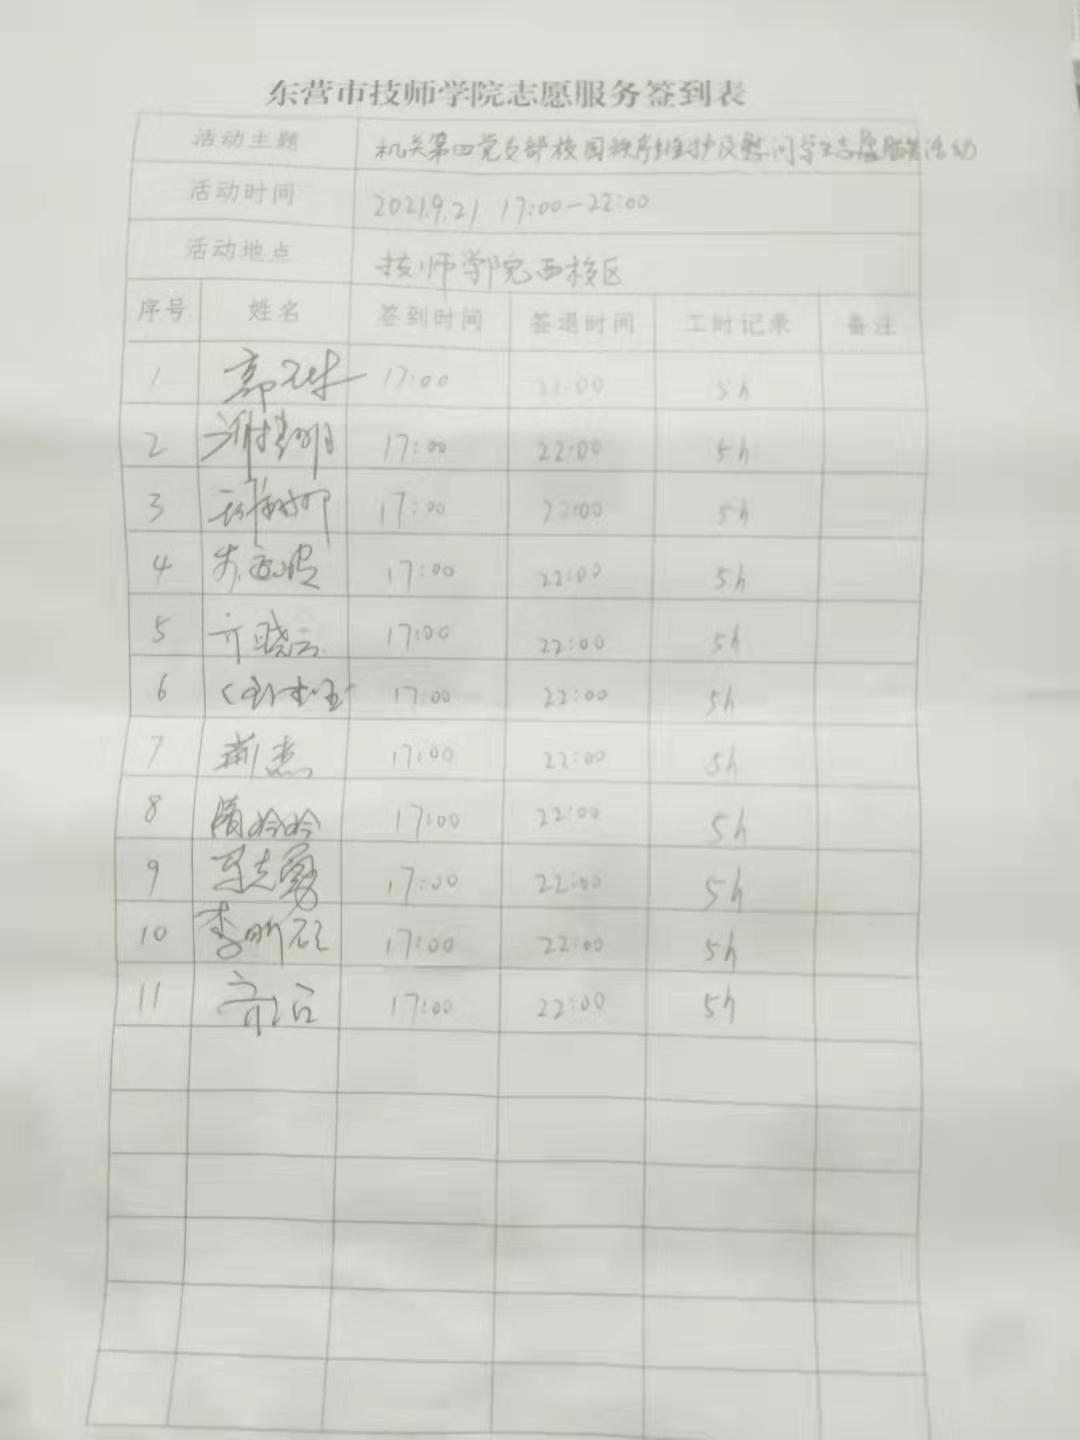 东营市技师学院志愿服务签到表
活动主题 机关第四党支部校园秩序维护及慰问学生志愿服务活动
活动时间 2021.9.21 17:00-22:00
活动地点 技师学院西校区
序号 姓名 签到时间 签退时间 工时记录 备注
1 17:00 22:00 5h
2 17:00 22:00 5h
3 17:00 22:00 5h
4 17:00 22:00 5h
5 齐晓云 17:00 22:00 5h
6 17:00 22:00 5h
7 荆杰 17:00 22:00 5h
8 隋玲玲 17:00 22:00 5h
9 17:00 22:00 5h
10 李昕 17:00 22:00 5h
11 17:00 22:00 5h